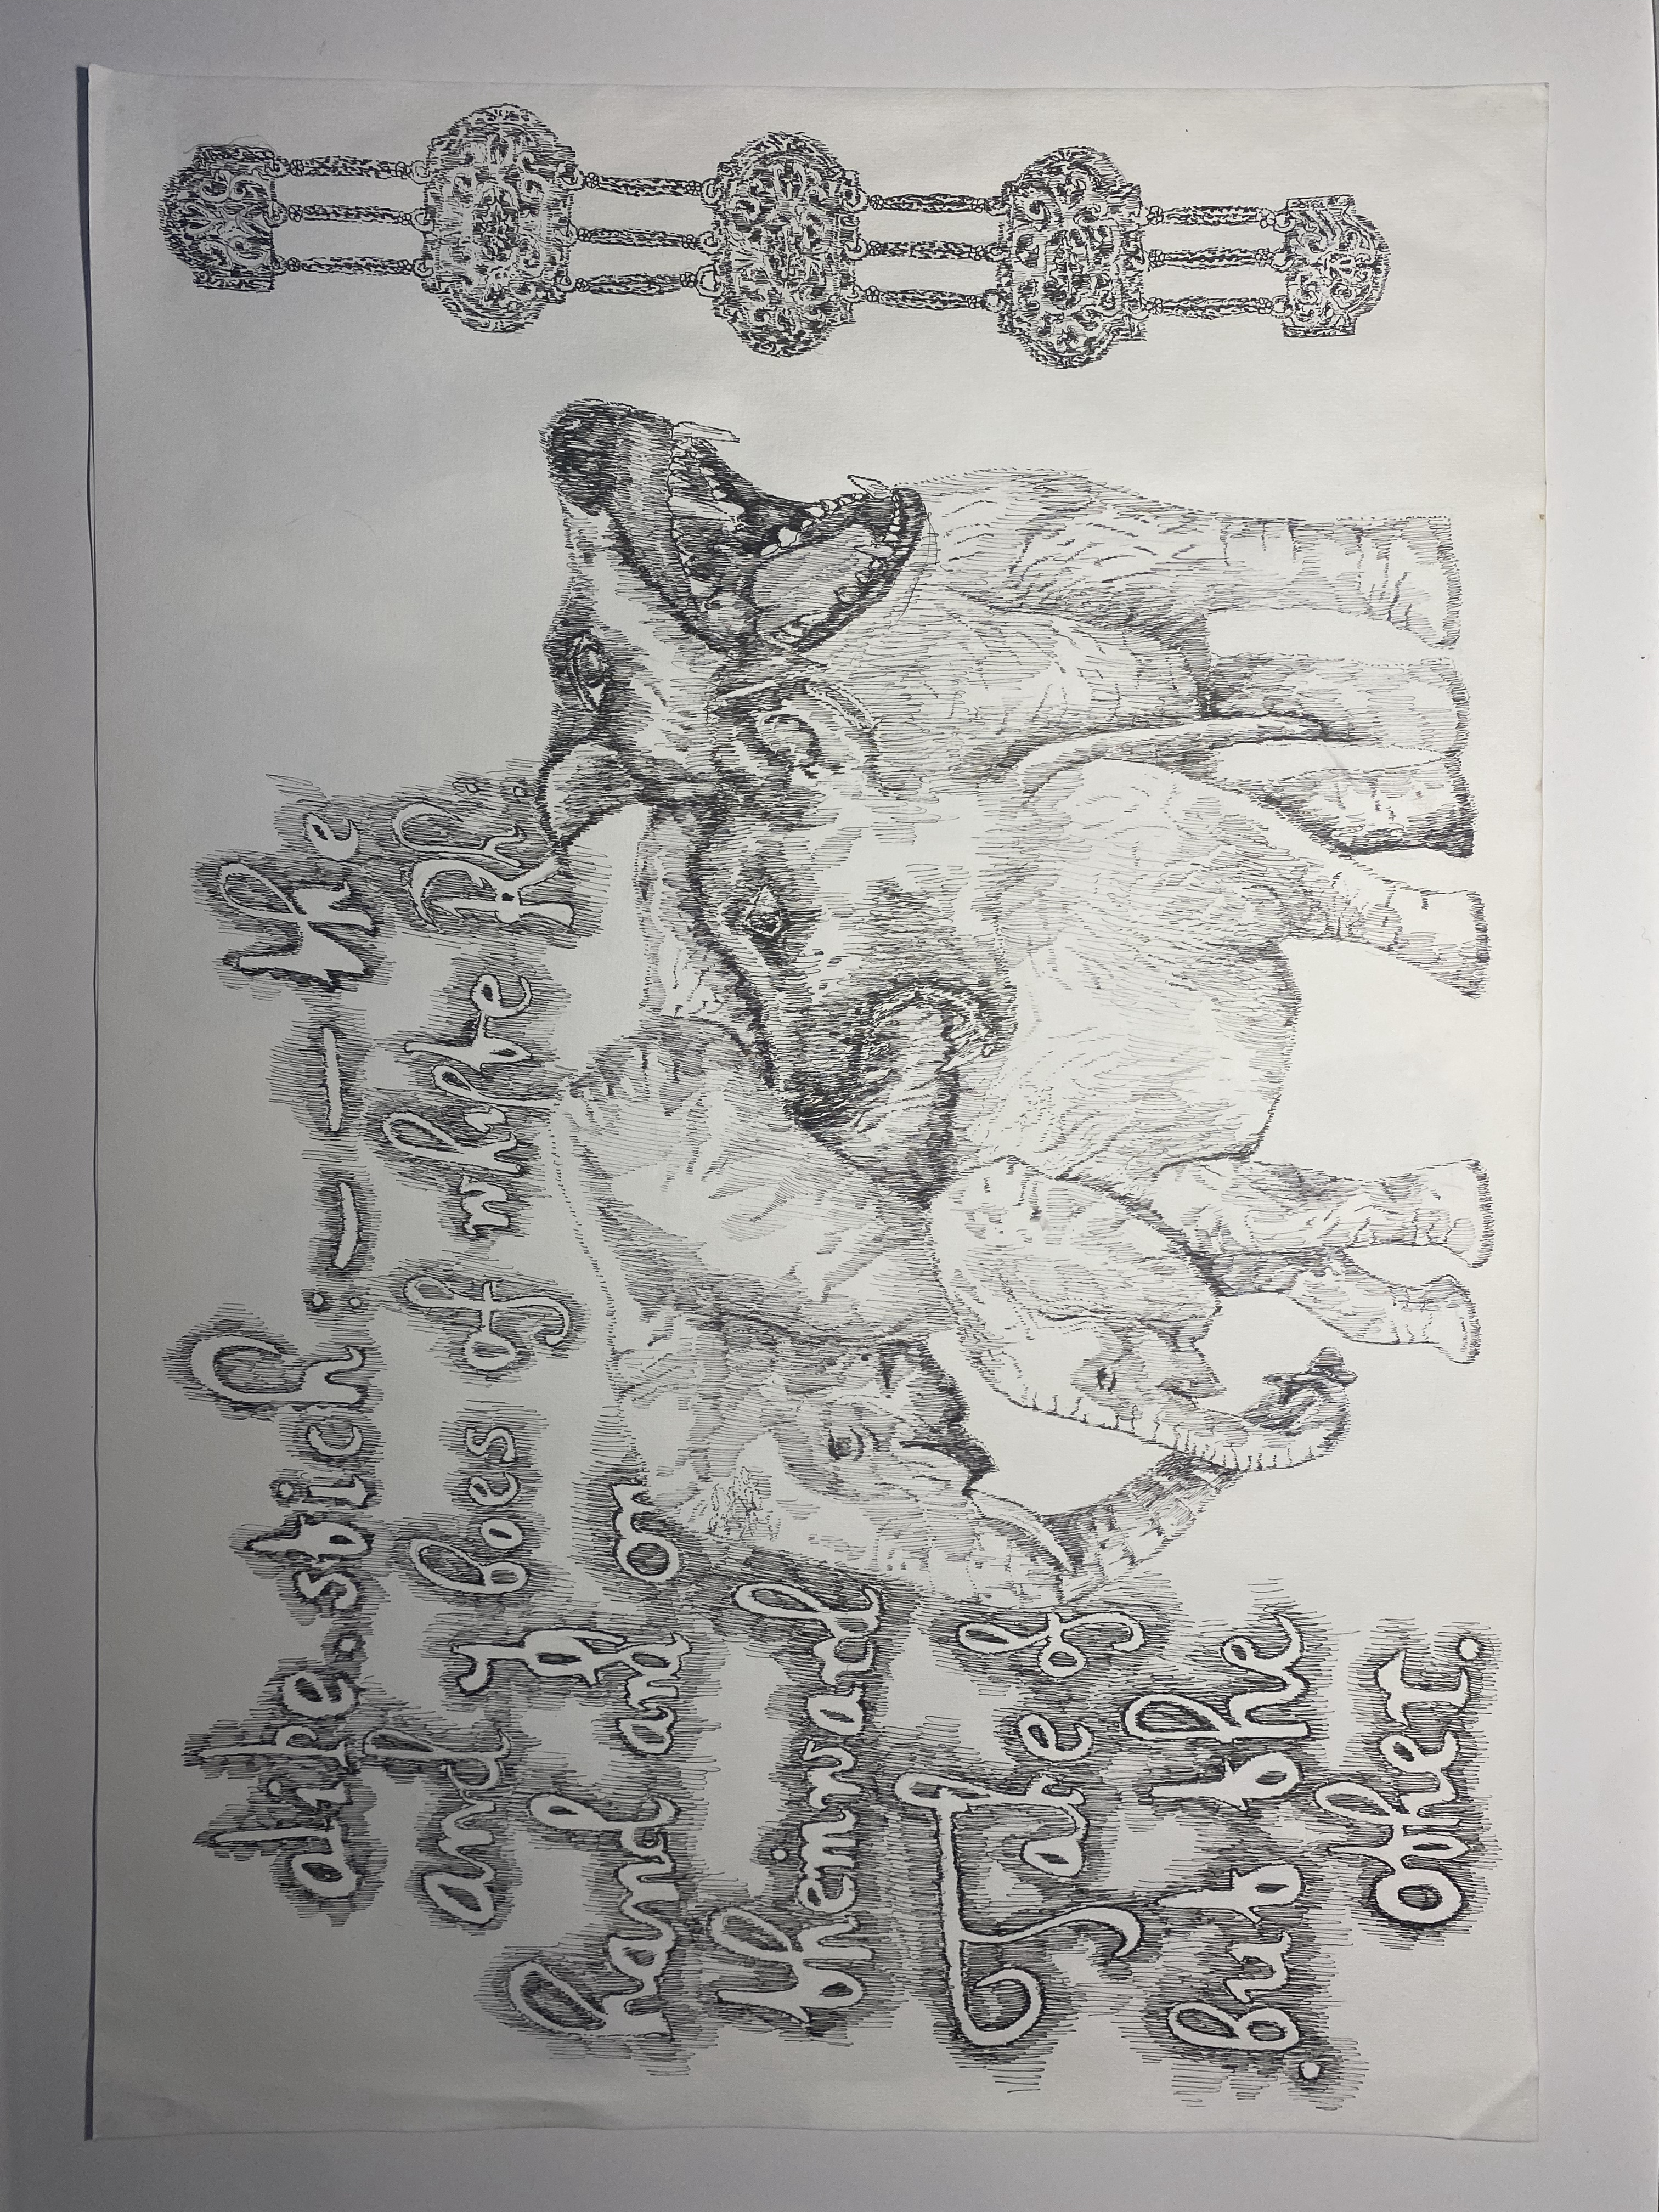 alike. stich : — — the
and y boes of whyte Rh :
hand and on
theinward
Take of
. but the
other .